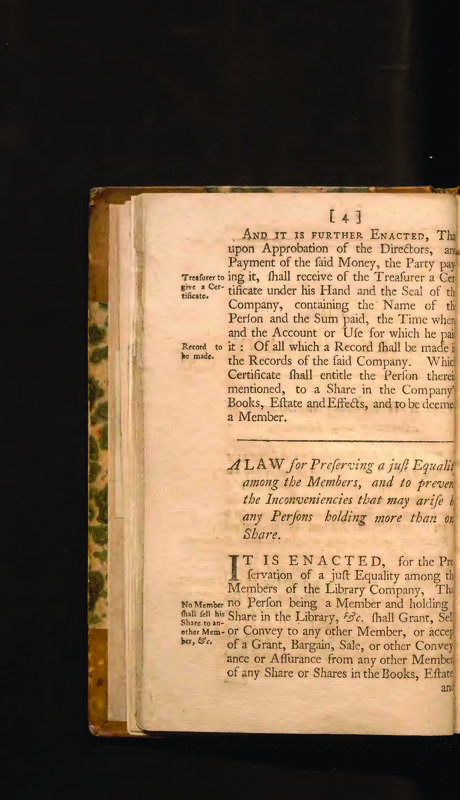 [ 4 ]
AND IT IS FURTHER ENACTED, Tha
upon Approbation of the Directors, an
Payment of the ſaid Money, the Party pay
ing it, ſhall receive of the Treaſurer a Cer
tificate under his Hand and the Seal of th
Company, containing the Name of th
Perſon and the Sum paid, the Time when
and the Account or Uſe for which he pai
it : Of all which a Record ſhall be made i
the Records of the ſaid Company. Whic
Certificate ſhall entitle the Perſon therei
mentioned, to a Share in the Company'
Books, Eſtate and Effects, and to be deeme
a Member.
Treaſurer to
give a Cer-
tificate.
Record to
be made.
A LAW for Preſerving a juſt Equalit
among the Members, and to preven
the Inconveniencies that may ariſe b
any Perſons holding more than on
Share.
IT IS ENACTED, for the Pre
ſervation of a juſt Equality among th
Members of the Library Company, Tha
no Perſon being a Member and holding
Share in the Library, &c. ſhall Grant, Sell
or Convey to any other Member, or accep
of a Grant, Bargain, Sale, or other Convey
ance or Aſſurance from any other Member
of any Share or Shares in the Books, Eſtate
and
No Member
ſhall ſell his
Share to an-
other Mem-
ber, &c.